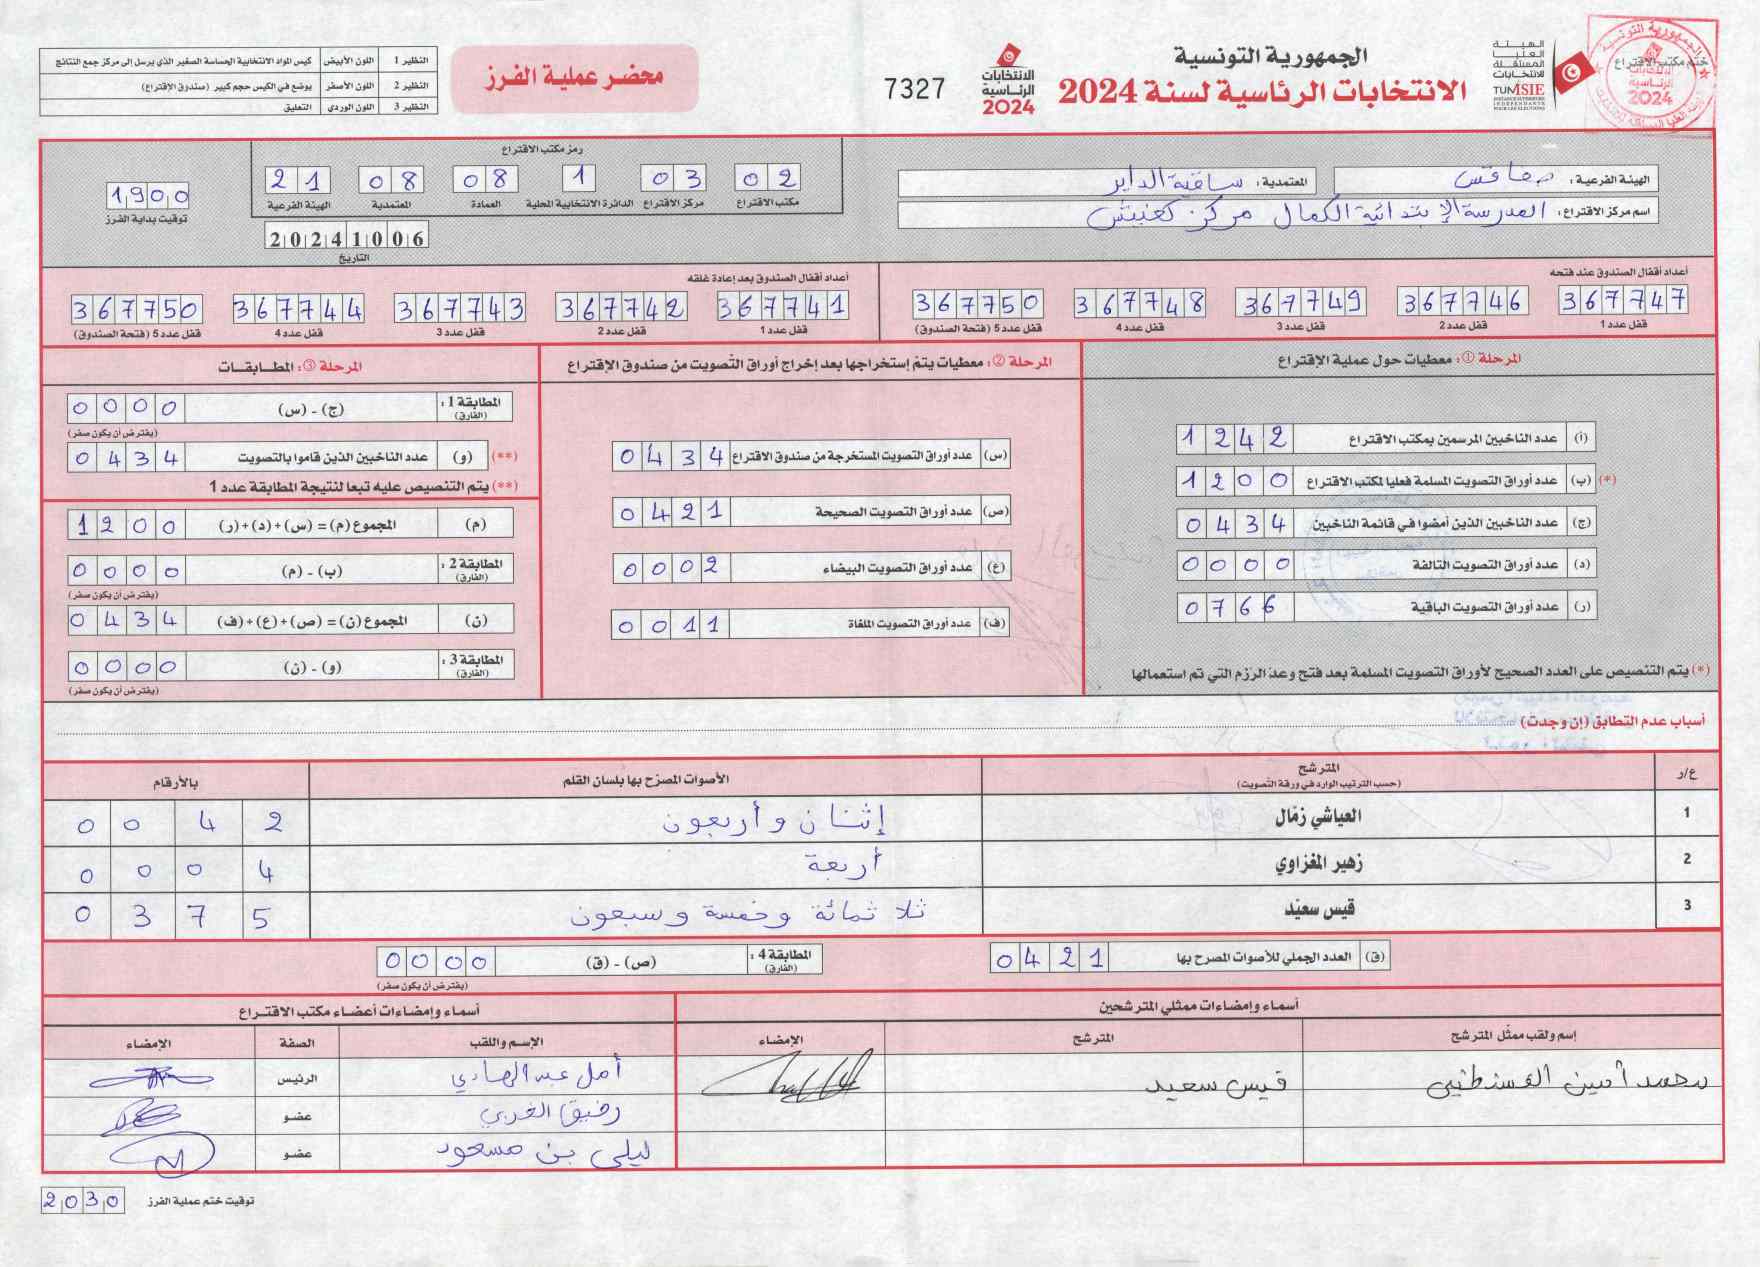 الجمهورية التونسية
الانتخابات الرئاسية لسنة 2024
الهيئة العليا المستقلة للانتخابات
TUNISIE
INSTANCE SUPERIEURE INDEPENDANTE POUR LES ELECTIONS
ختم مكتب الاقتراع
الجمهورية التونسية
الانتخابات الرئاسية 2024
الانتخابات الرئاسية 2024
7327
محضر عملية الفرز
النظير 1 اللون الأبيض كيس المواد الانتخابية الحساسة الصغير الذي يرسل إلى مركز جمع النتائج
النظير 2 اللون الأصفر يوضع في الكيس حجم كبير (صندوق الإقتراع)
النظير 3 اللون الوردي التعليق
الهيئة الفرعية: صفاقس
المعتمدية: ساقية الداير
اسم مركز الاقتراع: المدرسة الإبتدائية الكمال مركز كعنيش
رمز مكتب الاقتراع
02 03 1 08 08 21
مكتب الاقتراع مركز الاقتراع الدائرة الانتخابية المحلية العمادة المعتمدية الهيئة الفرعية
20241006
التاريخ
1900
توقيت بداية الفرز
أعداد أقفال الصندوق عند فتحه
367747 367746 367749 367748 367750
قفل عدد 1 قفل عدد 2 قفل عدد 3 قفل عدد 4 قفل عدد 5 (فتحة الصندوق)
أعداد أقفال الصندوق بعد إعادة غلقه
367741 367742 367743 367744 367750
قفل عدد 1 قفل عدد 2 قفل عدد 3 قفل عدد 4 قفل عدد 5 (فتحة الصندوق)
المرحلة ①: معطيات حول عملية الإقتراع
(أ) عدد الناخبين المرسمين بمكتب الاقتراع 1242
(*) (ب) عدد أوراق التصويت المسلمة فعليا لمكتب الاقتراع 1200
(ج) عدد الناخبين الذين أمضوا في قائمة الناخبين 0434
(د) عدد أوراق التصويت التالفة 0000
(ر) عدد أوراق التصويت الباقية 0766
(*) يتم التنصيص على العدد الصحيح لأوراق التصويت المسلمة بعد فتح وعد الرزم التي تم استعمالها
المرحلة ②: معطيات يتم إستخراجها بعد إخراج أوراق التصويت من صندوق الإقتراع
(س) عدد أوراق التصويت المستخرجة من صندوق الاقتراع 0434
(ص) عدد أوراق التصويت الصحيحة 0421
(ع) عدد أوراق التصويت البيضاء 0002
(ف) عدد أوراق التصويت الملغاة 0011
المرحلة ③: المطابقات
المطابقة 1: (الفارق) (ج) - (س) 0000
(يفترض أن يكون صفر)
(**) (و) عدد الناخبين الذين قاموا بالتصويت 0434
(**) يتم التنصيص عليه تبعا لنتيجة المطابقة عدد 1
(م) المجموع (م) = (س) + (د) + (ر) 1200
المطابقة 2: (الفارق) (ب) - (م) 0000
(يفترض أن يكون صفر)
(ن) المجموع (ن) = (ص) + (ع) + (ف) 0434
المطابقة 3: (الفارق) (و) - (ن) 0000
(يفترض أن يكون صفر)
أسباب عدم التطابق (إن وجدت)
ع/ر المترشح الأصوات المصرّح بها بلسان القلم بالأرقام
(حسب الترتيب الوارد في ورقة التصويت)
1 العياشي زمّال إثنان وأربعون 0042
2 زهير المغزاوي أربعة 0004
3 قيس سعيّد ثلاثمائة وخمسة وسبعون 0375
(ق) العدد الجملي للأصوات المصرح بها 0421
المطابقة 4: (الفارق) (ص) - (ق) 0000
(يفترض أن يكون صفر)
أسماء وإمضاءات ممثلي المترشحين
إسم ولقب ممثّل المترشح المترشح الإمضاء
محمد أمين القسنطيني قيس سعيد
أسماء وإمضاءات أعضاء مكتب الاقتراع
الإسم واللقب الصفة الإمضاء
أمل عبد الهادي الرئيس
رفيق الغربي عضو
ليلى بن مسعود عضو
توقيت ختم عملية الفرز 2030